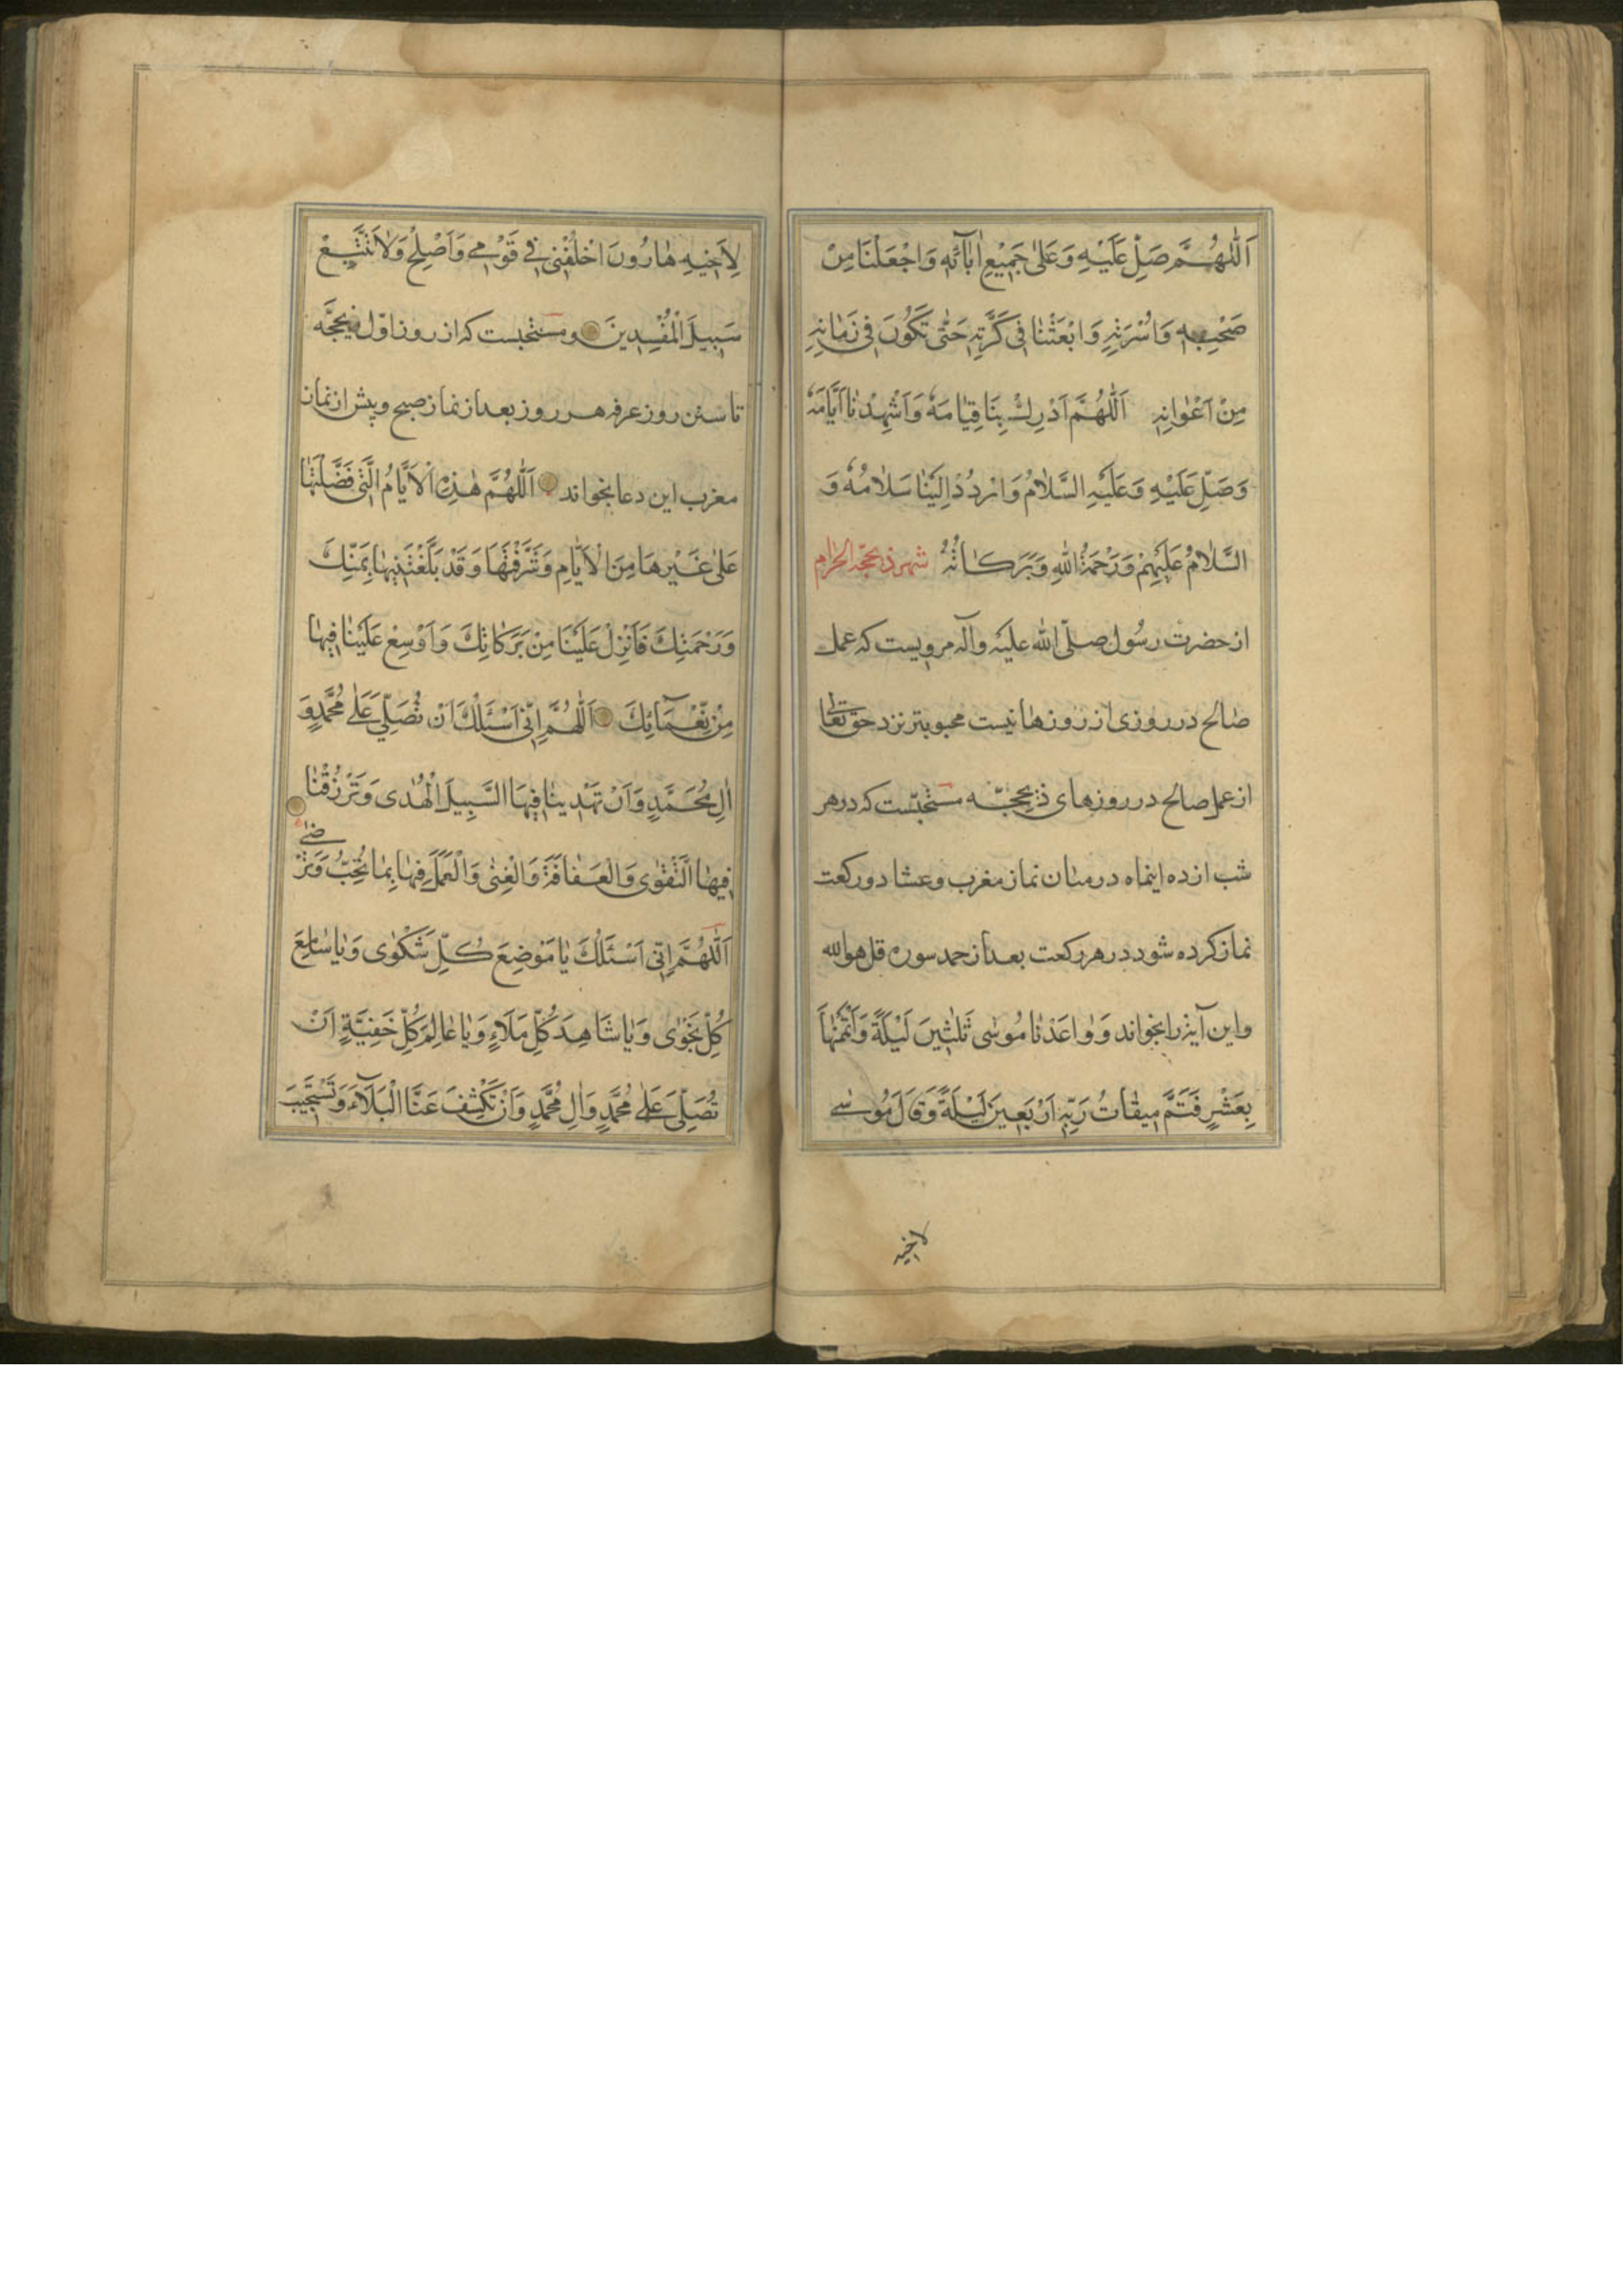 اَللّٰهُمَّ صَلِّ عَلَيْهِ وَعَلىٰ جَمِيْعِ اٰبآئِهِ وَاجْعَلْنَا مِنْ
صَحْبِهِ وَاُسْرَتِهِ وَابْعَثْنٰا فِى كَرَّتِهِ حَتّٰى نَكُونَ فِى زَمٰانِهِ
مِنْ اَعْوٰانِهِ اَللّٰهُمَّ اَدْرِكْ بِنَا قِيٰامَهُ وَاَشْهِدْنٰا اَيّٰامَهُ
وَصَلِّ عَلَيْهِ وَعَلَيْهِ السَّلٰامُ وَارْدُدْ اِلَيْنٰا سَلٰامُهُ وَ
السَّلٰامُ عَلَيْهِمْ وَرَحْمَةُ اللّٰهِ وَبَرَكٰاتُهُ شهر ذيحجّة الحرام
از حضرت رسُول صلّى اللّه عليه وآله مرويست كه عمل
صٰالح در روزى از روزها نيست محبوبتر نزد حق تعٰالى
از عمل صالح در روزهاى ذيحجّه مستحبّست كه در هر
شب از ده اينماه در ميٰان نماز مغرب وعشا دو ركعت
نماز كرده شود در هر ركعت بعد از حمد سوره قل هو اللّه
واين آيه را بخواند وَوٰاعَدْنٰا مُوسٰى ثَلٰثِينَ لَيْلَةً وَاَتْمَمْنٰهاَ
بِعَشْرٍ فَتَمَّ مِيقٰاتُ رَبِّهِ اَرْبَعِينَ لَيْلَةً وَقٰالَ مُوسٰى
لاخيه
لِاَخِيْهِ هٰارُونَ اخْلُفْنِى فِى قَوْمِى وَاَصْلِحْ وَلٰاتَتَّبِعْ
سَبِيلَ الْمُفْسِدِينَ ومستحبست كه از روز اوّل ذيحجّه
تا پسين روز عرفه هر روز بعد از نماز صبح وپيش از نماز
مغرب اين دعا بخواند اَللّٰهُمَّ هٰذِهِ الْاَيّٰامُ الَّتِى فَضَّلْتَهٰا
عَلىٰ غَيْرِهَا مِنَ الْاَيّٰامِ وَشَرَّفْتَهٰا وَقَدْ بَلَّغْتَنِيهٰا بِمَنِّكَ
وَرَحْمَتِكَ فَاَنْزِلْ عَلَيْنَا مِنْ بَرَكٰاتِكَ وَاَوْسِعْ عَلَيْنٰا فِيهٰا
مِنْ نَعْمٰآئِكَ اَللّٰهُمَّ اِنِّى اَسْئَلُكَ اَنْ تُصَلِّيَ عَلٰى مُحَمَّدٍ وَ
اٰلِ مُحَمَّدٍ وَاَنْ تَهْدِيَنٰا فِيهَا السَّبِيلَ الْهُدٰى وَتَرْزُقْنٰا
فِيهَا التَّقْوٰى وَالْعَفٰافَةَ وَالْغِنٰى وَالْعَمَلَ فِيهٰا بِمٰا تُحِبُّ وَتَرْضٰى
اَللّٰهُمَّ اِنِّى اَسْئَلُكَ يٰا مَوْضِعَ كُلِّ شَكْوٰى وَيٰا سٰامِعَ
كُلِّ نَجْوٰى وَيٰا شٰاهِدَ كُلِّ مَلَاءٍ وَيٰا عٰالِمَ كُلِّ خَفِيَّةٍ اَنْ
تُصَلِّىَ عَلٰى مُحَمَّدٍ وَاٰلِ مُحَمَّدٍ وَاَنْ تَكْشِفَ عَنَّا الْبَلَآءَ وَتَسْتَجِيبَ